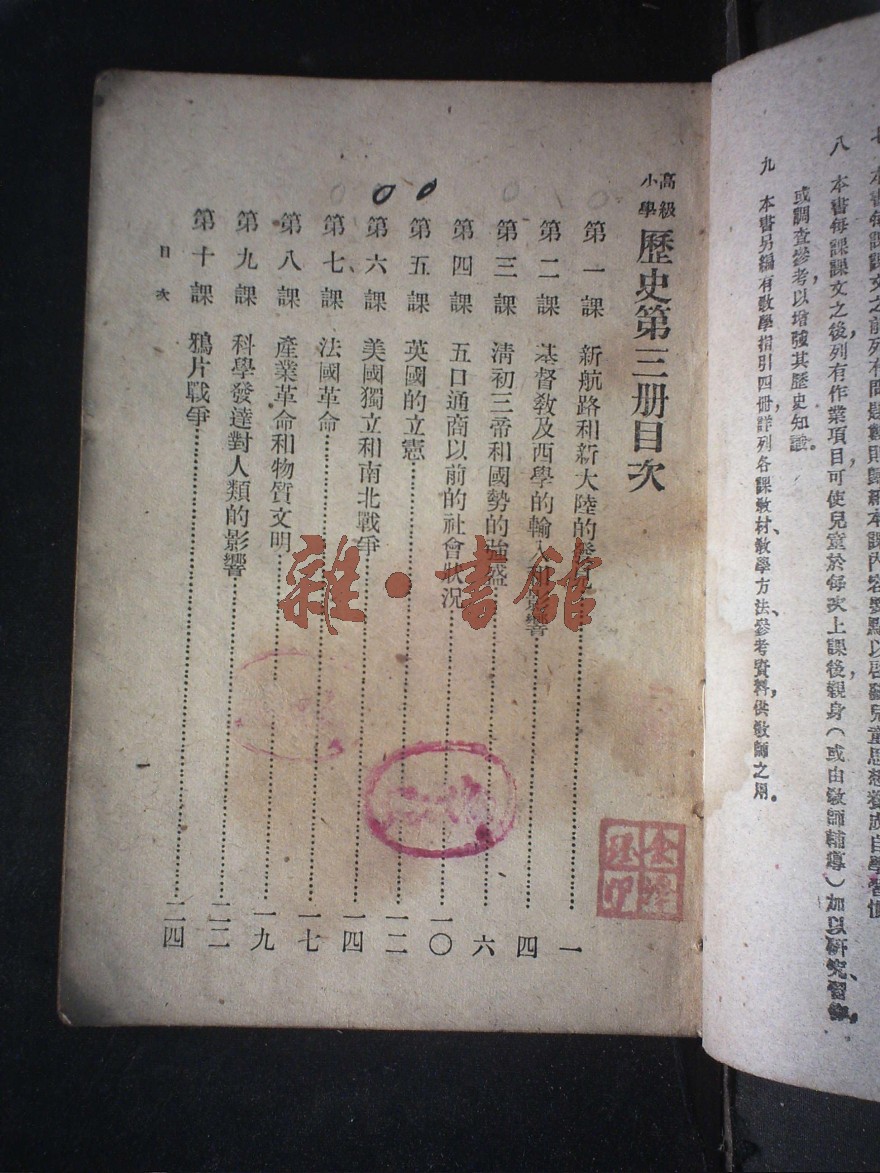 七 本書每課課文之前列有問題數則歸納本課內容要點以啓發兒童思想養成自學習慣
八 本書每課課文之後列有作業項目，可使兒童於每次上課後，親身（或由教師輔導）加以研究、習作，
或調查參考，以增強其歷史知識。
九 本書另編有教學指引四冊，詳列各課教材、教學方法、參考資料，供教師之用。
高級小學 歷史第三册目次
第一課 新航路和新大陸的發見……一
第二課 基督教及西學的輸入和影響……四
第三課 清初三帝和國勢的強盛……六
第四課 五口通商以前的社會狀況……一〇
第五課 英國的立憲……一二
第六課 美國獨立和南北戰爭……一四
第七課 法國革命……一七
第八課 產業革命和物質文明……一九
第九課 科學發達對人類的影響……二二
第十課 鴉片戰爭……二四
目次
一
雜·書館